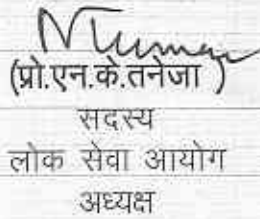 (प्रो.एन.के.तनेजा )
सदस्य
लोक सेवा आयोग
अध्यक्ष